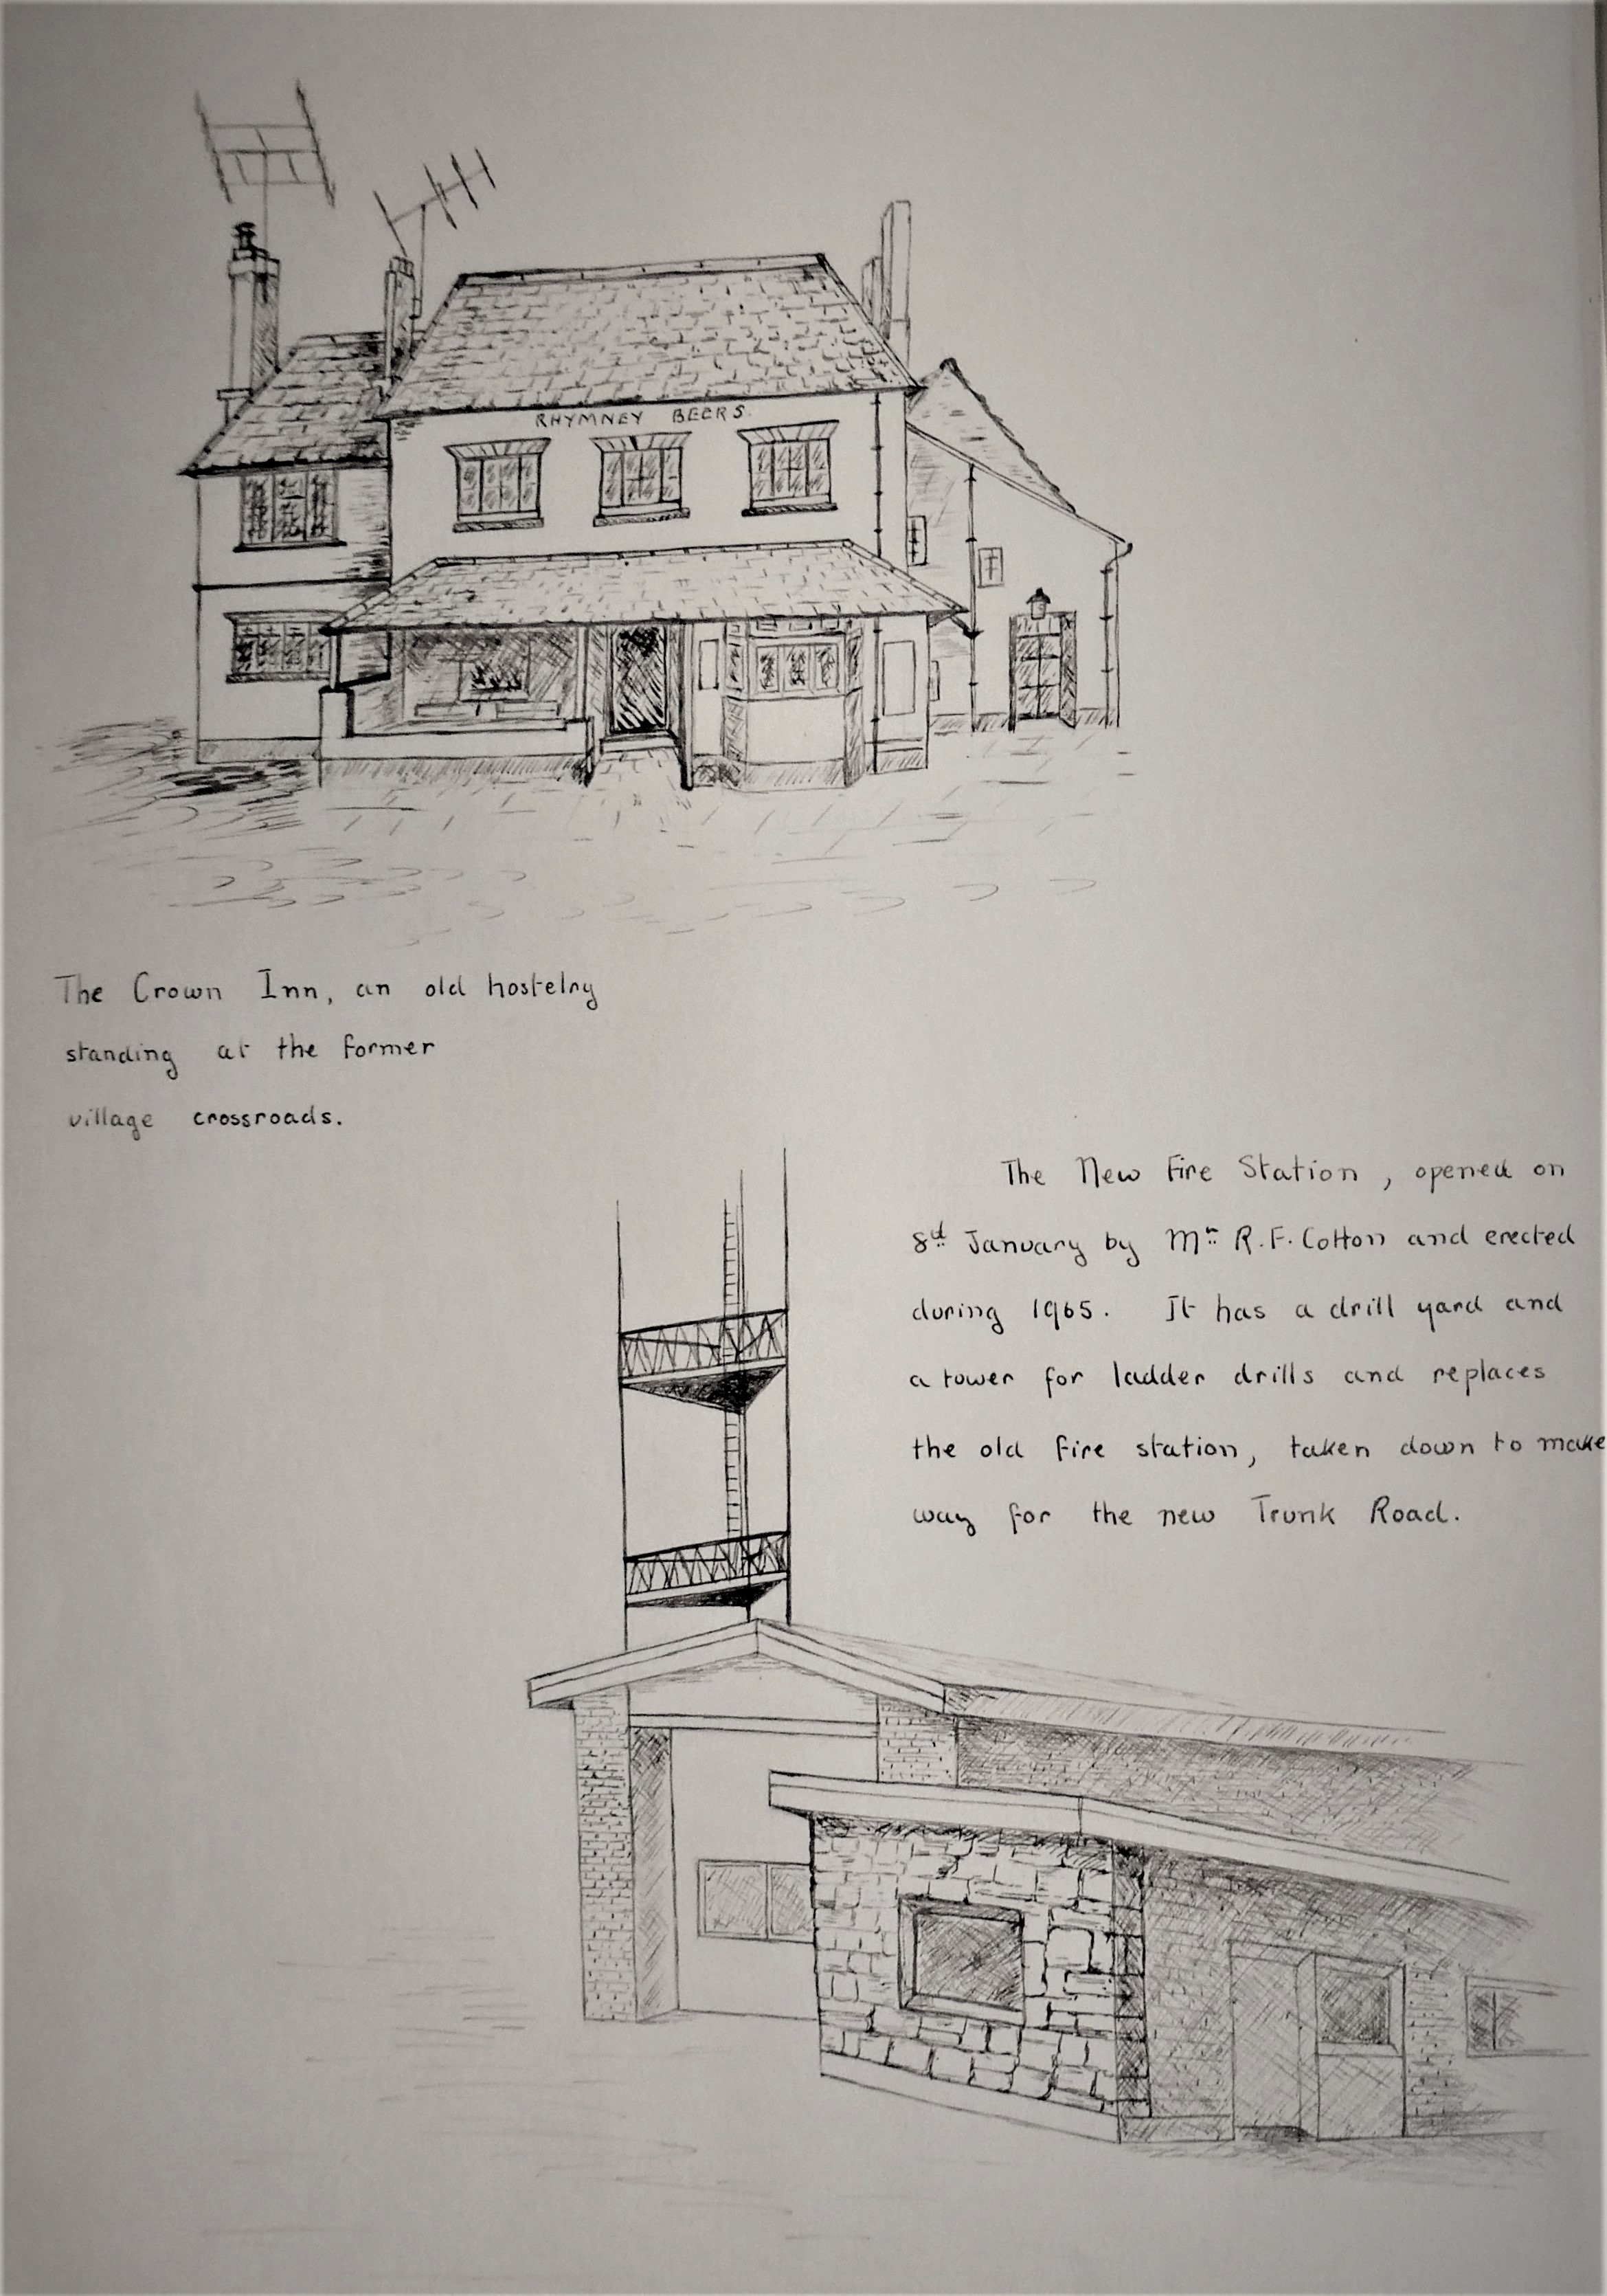 RHYMNEY BEERS.
The Crown Inn, an old hostelry
standing at the former
village crossroads.
The New Fire Station, opened on
8d January by Mr R.F. Cotton and erected
during 1965. It has a drill yard and
a tower for ladder drills and replaces
the old fire station, taken down to make
way for the new Trunk Road.